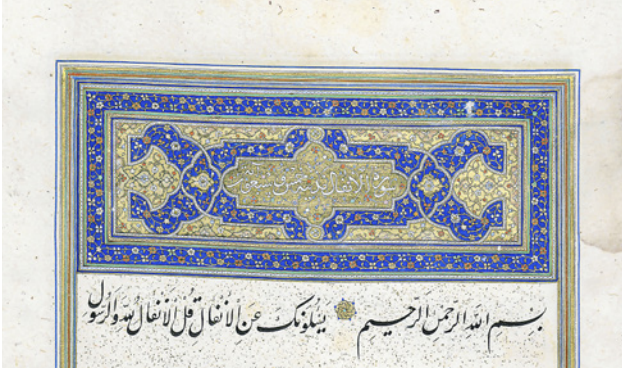 سورة الانفال مدنية خمس وسبعون
بِسْمِ اللهِ الرَّحْمٰنِ الرَّحِيمِ يَسْـَٔلُونَكَ عَنِ الْأَنْفَالِ قُلِ الْأَنْفَالُ لِلّٰهِ وَالرَّسُولِ